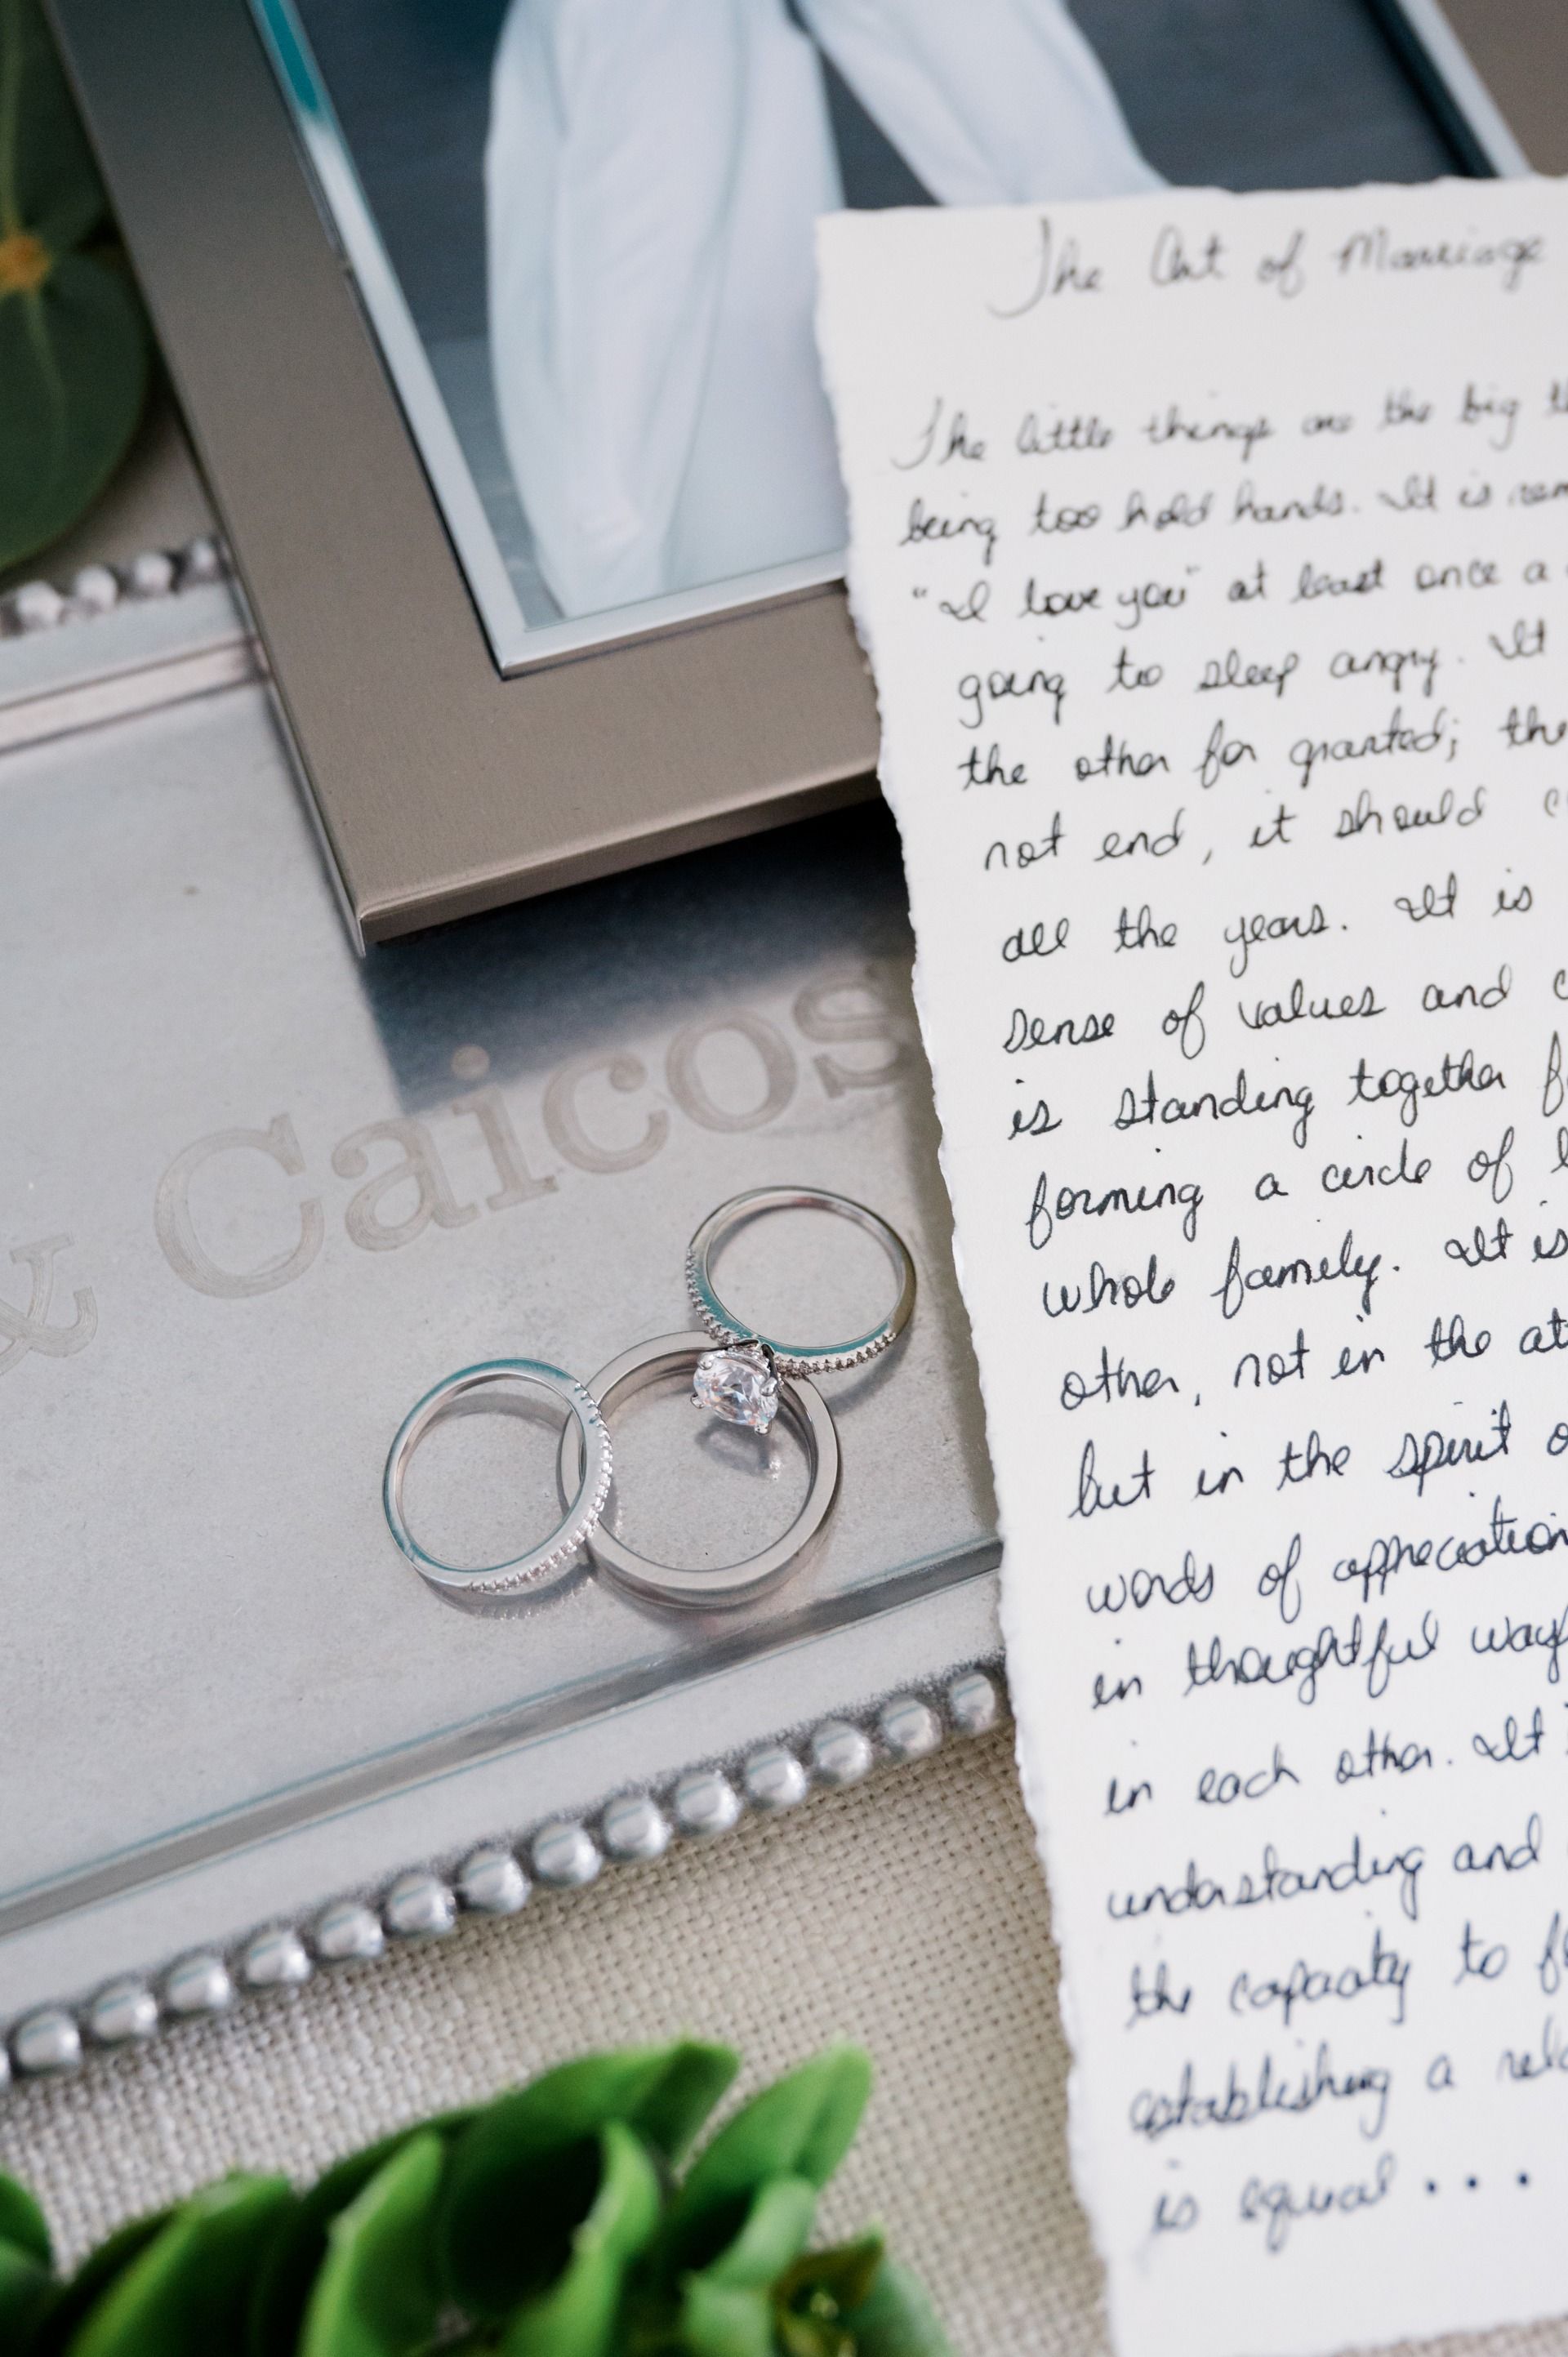 & Caicos
The Art of Marriage
The little things are the big
being too hold hands. It is
"I love you" at least once a
going to sleep angry. It
the other for granted; the
not end, it should
all the years. It is
sense of values and
is standing together
forming a circle of
whole family. It is
other, not in the
but in the spirit
words of appreciation
in thoughtful ways
in each other. It
understanding and
the capacity to
establishing a
is equal....